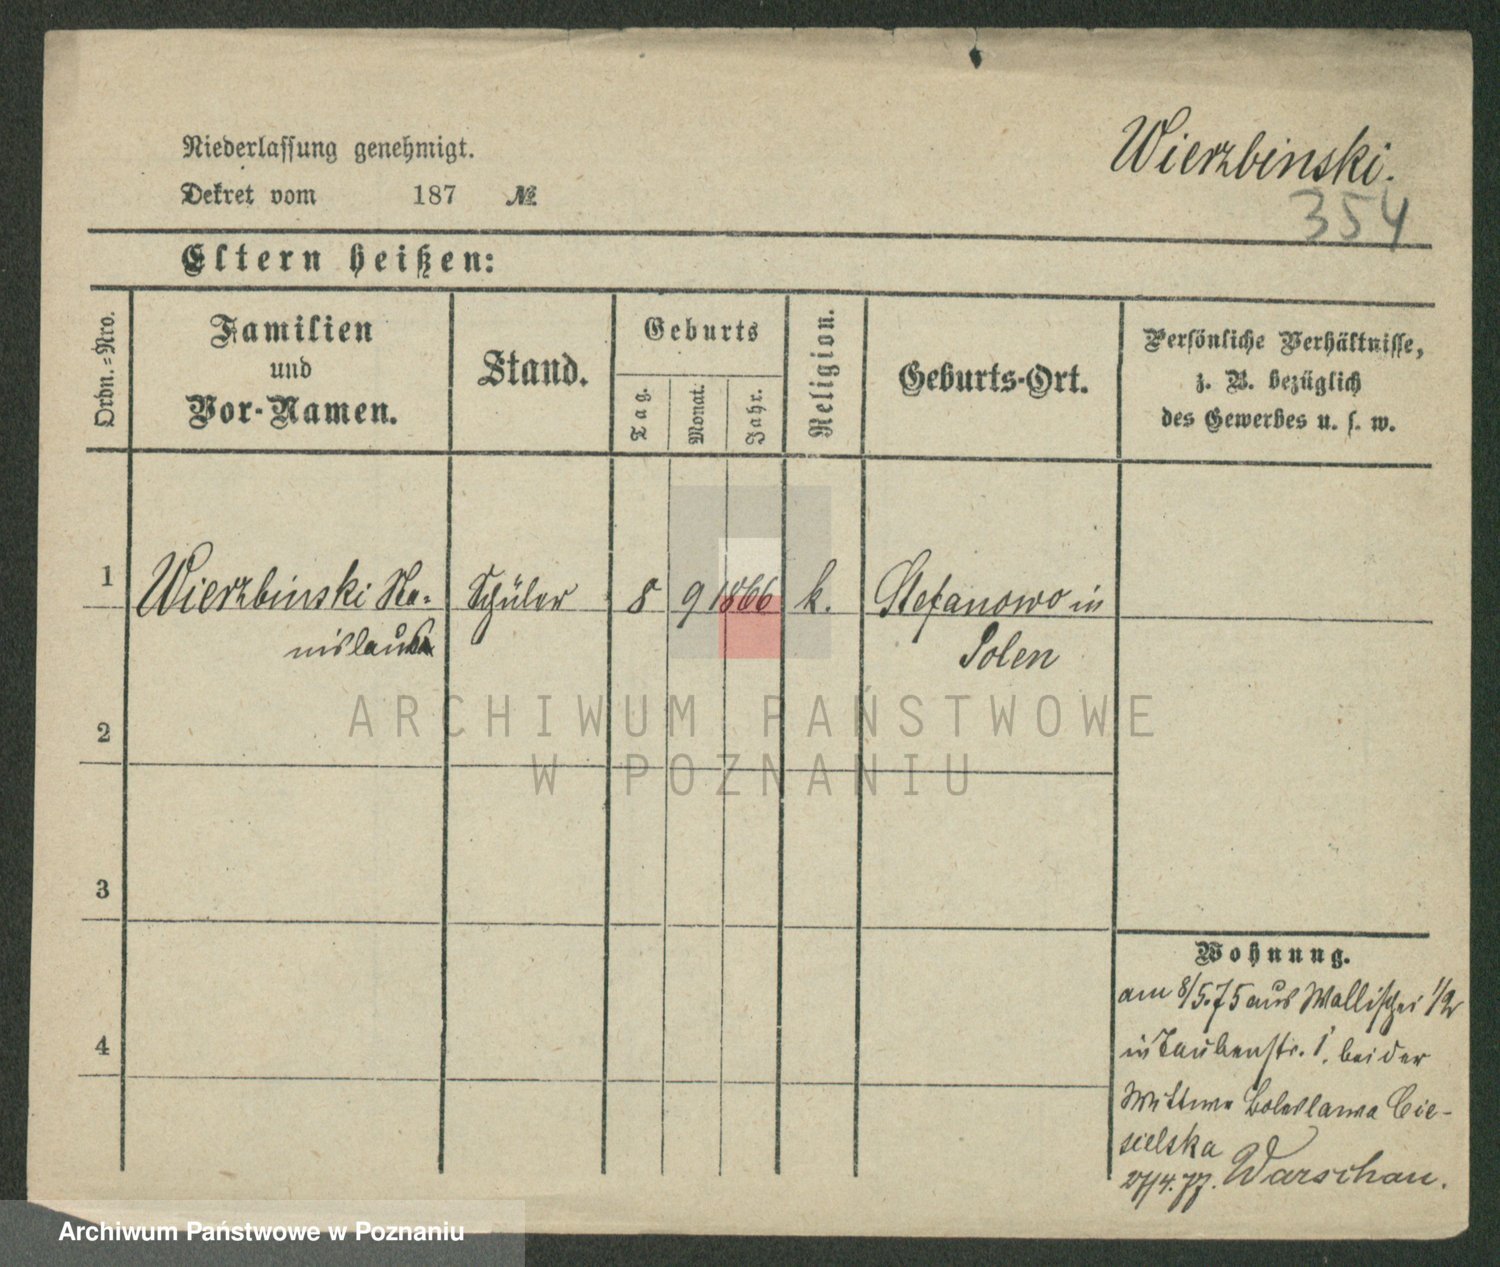 Wierzbinski.
354
Niederlassung genehmigt.
Dekret vom 187 №
Eltern heißen:
Ordn.=Nro.
Familien
und
Vor-Namen.
Stand.
Geburts
Tag.
Monat.
Jahr.
Religion.
Geburts-Ort.
Persönliche Verhältnisse,
z. B. bezüglich
des Gewerbes u. s. w.
1 Wierzbinski Sta= Schüler 8 9 1866 k. Stefanowo in
nislaus Polen
2
3
4
Wohnung.
am 8/5.75 aus Wallischei 1/2
in Taubenstr. 1. bei der
Wittwe Boleslawa Cie-
sielska
27/4.77. Warschau.
ARCHIWUM PAŃSTWOWE
W POZNANIU
Archiwum Państwowe w Poznaniu